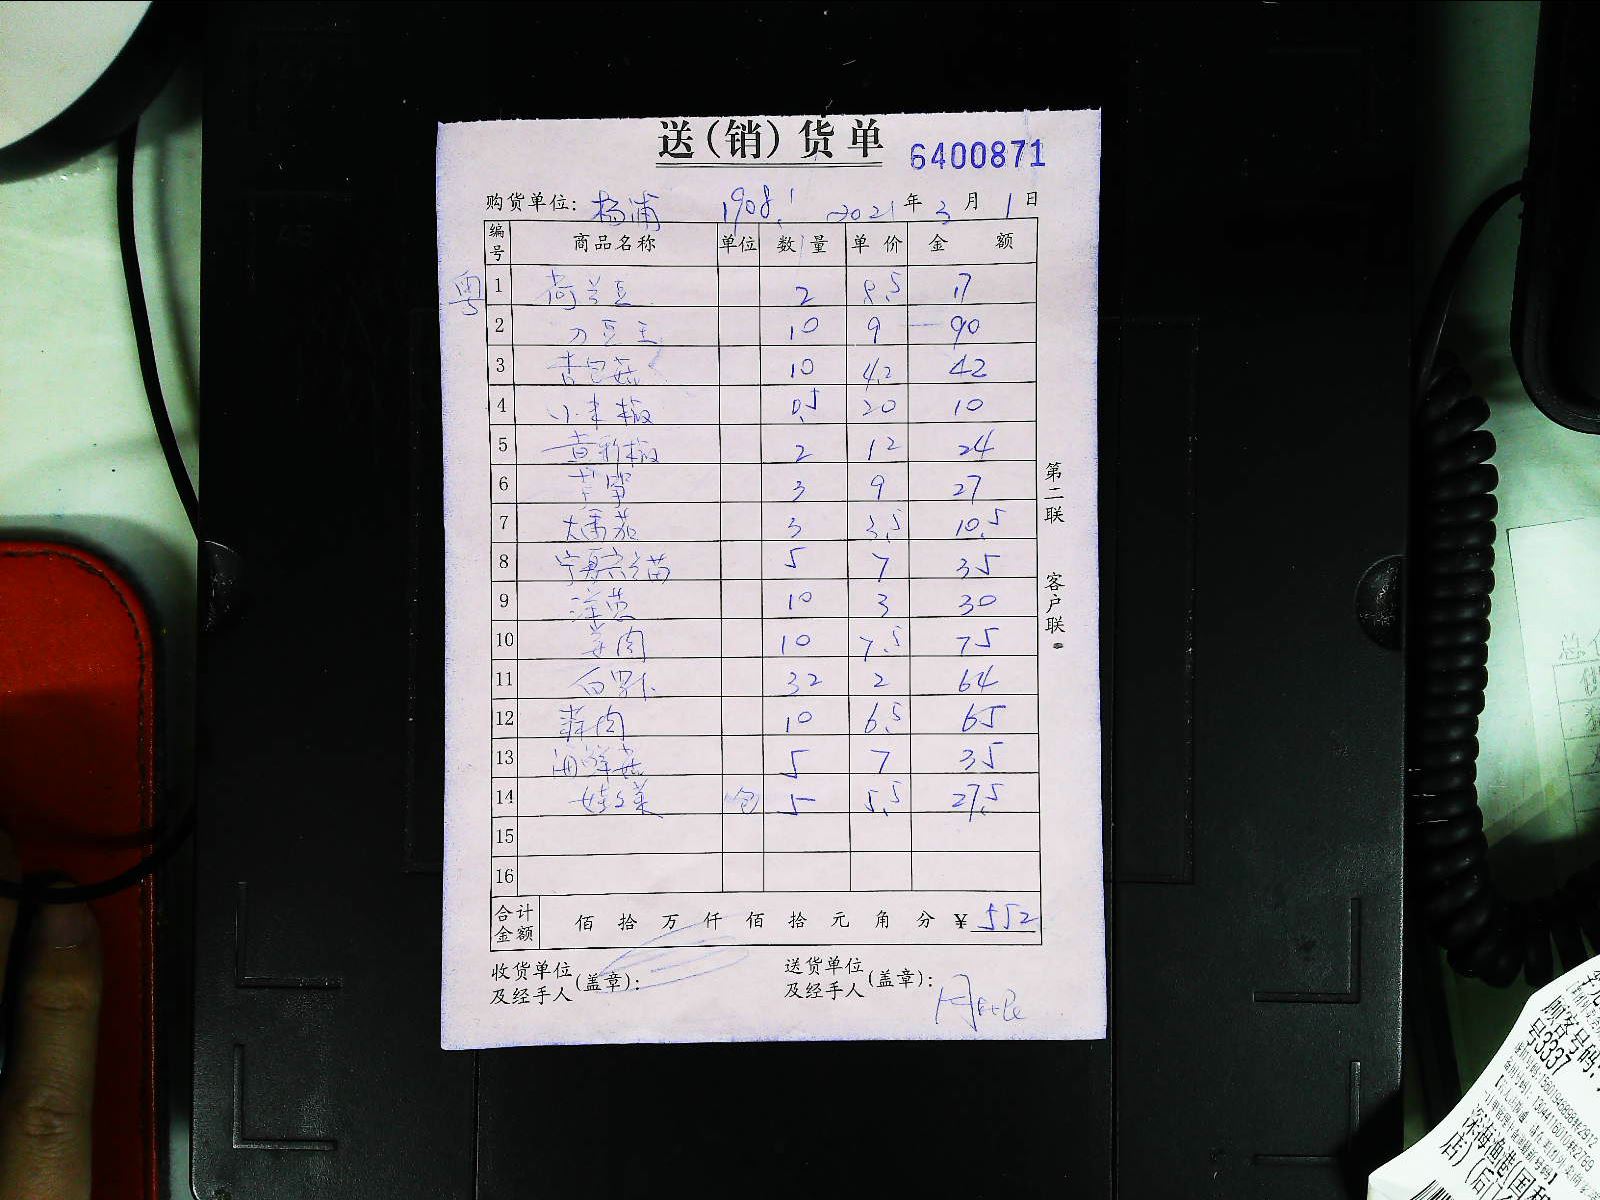 送(销)货单
6400871
购货单位: 杨浦 1908.1 2021年3月1日
编号 商品名称 单位 数量 单价 金额
粤
1 荷兰豆 2 8.5 17
2 刀豆王 10 9 90
3 杏鲍菇 10 4.2 42
4 小米椒 0.5 20 10
5 黄彩椒 2 12 24
6 芦笋 3 9 27
7 大番茄 3 3.5 10.5
8 5 7 35
9 洋葱 10 3 30
10 姜肉 10 7.5 75
11 白萝卜 32 2 64
12 蒜肉 10 6.5 65
13 海鲜菇 5 7 35
14 娃娃菜 包 5 5.5 27.5
15
16
合计金额 佰拾万仟佰拾元角分 ¥552
收货单位及经手人(盖章):
送货单位及经手人(盖章):
第二联 客户联
顾客号码:
号3337
深海渔港(国
店)(后